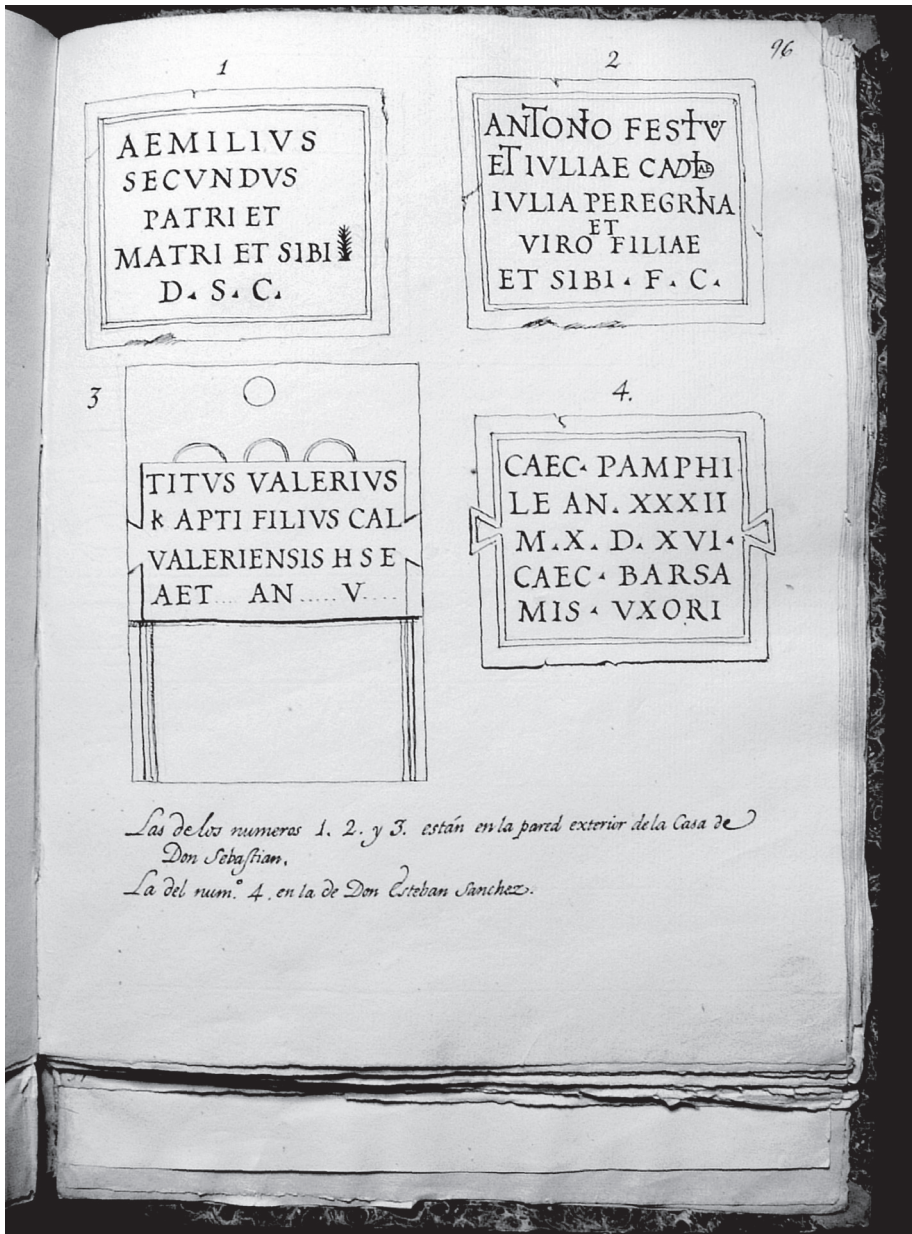 96
1
AEMILIVS
SECVNDVS
PATRI ET
MATRI ET SIBI
D. S. C.
2
ANTONO FESTV
ET IVLIAE
IVLIA PEREGRINA
ET
VIRO FILIAE
ET SIBI . F . C .
3
TITVS VALERIVS
APTI FILIVS CAL
VALERIENSIS H S E
AET .... AN ..... V ....
4.
CAEC . PAMPHI
LE AN . XXXII
M . X . D . XVI .
CAEC . BARSA
MIS . VXORI
Las de los numeros 1. 2. y 3. están en la pared exterior de la Casa de
Don Sebastian.
La del num.º 4. en la de Don Esteban Sanchez.